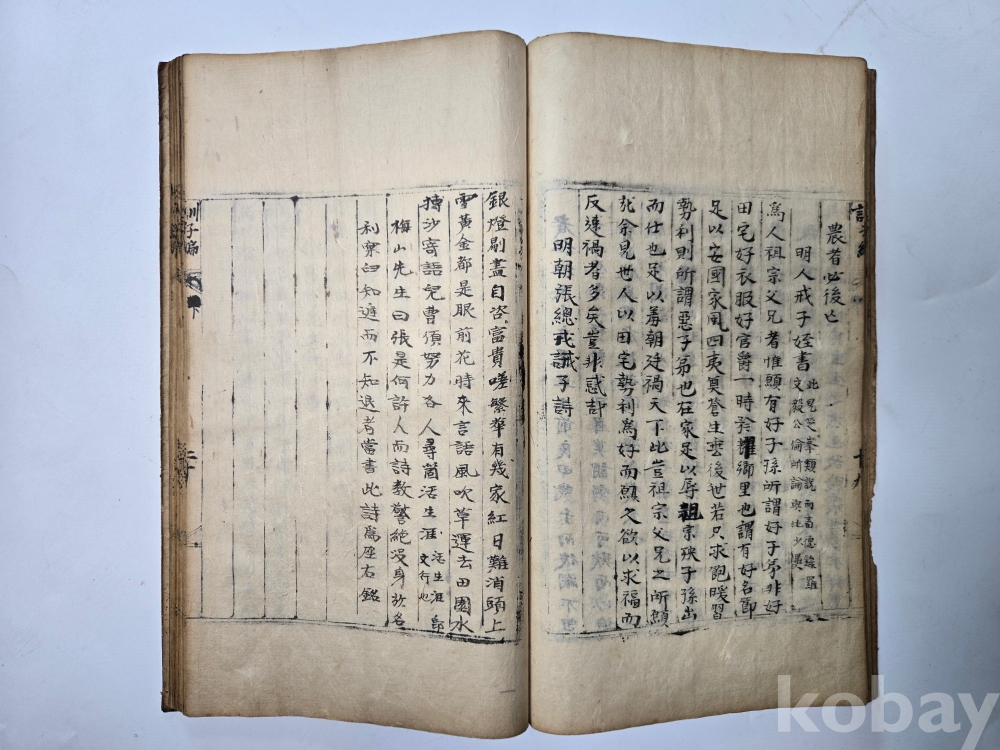 農者必後已
明人戒子姪書
此見芝峯類說而羅
文毅公倫所論與此大
爲人祖宗父兄者惟願有好子孫所謂好子弟非好
田宅好衣服好官爵一時矜耀鄕里也謂有好名節
足以安國家風四夷奠蒼生垂後世若只求飽暖習
勢利則所謂惡子弟也在家足以辱祖宗殃子孫出
而仕也足以羞朝廷禍天下此豈祖宗父兄之所願
哉余見世人以田宅勢利爲好而願久欲以求福而
反速禍者多矣豈非惑却
明朝張總戎誡子詩
銀燈剔盡自咨嗟富貴繁華有幾家紅日難消頭上
雪黃金都是眼前花時來言語風吹草運去田園水
摶沙寄語兒曹須努力各人尋箇活生涯
活生涯卽
文行也
梅山先生曰張是何許人而詩教警絶沒身於名
利窠臼知進而不知退者當書此詩爲座右銘
訓子編
下
二十
十九
kobay